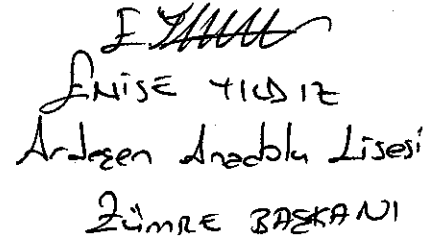 Enise YILDIZ
Ardeşen Anadolu Lisesi
Zümre BAŞKANI